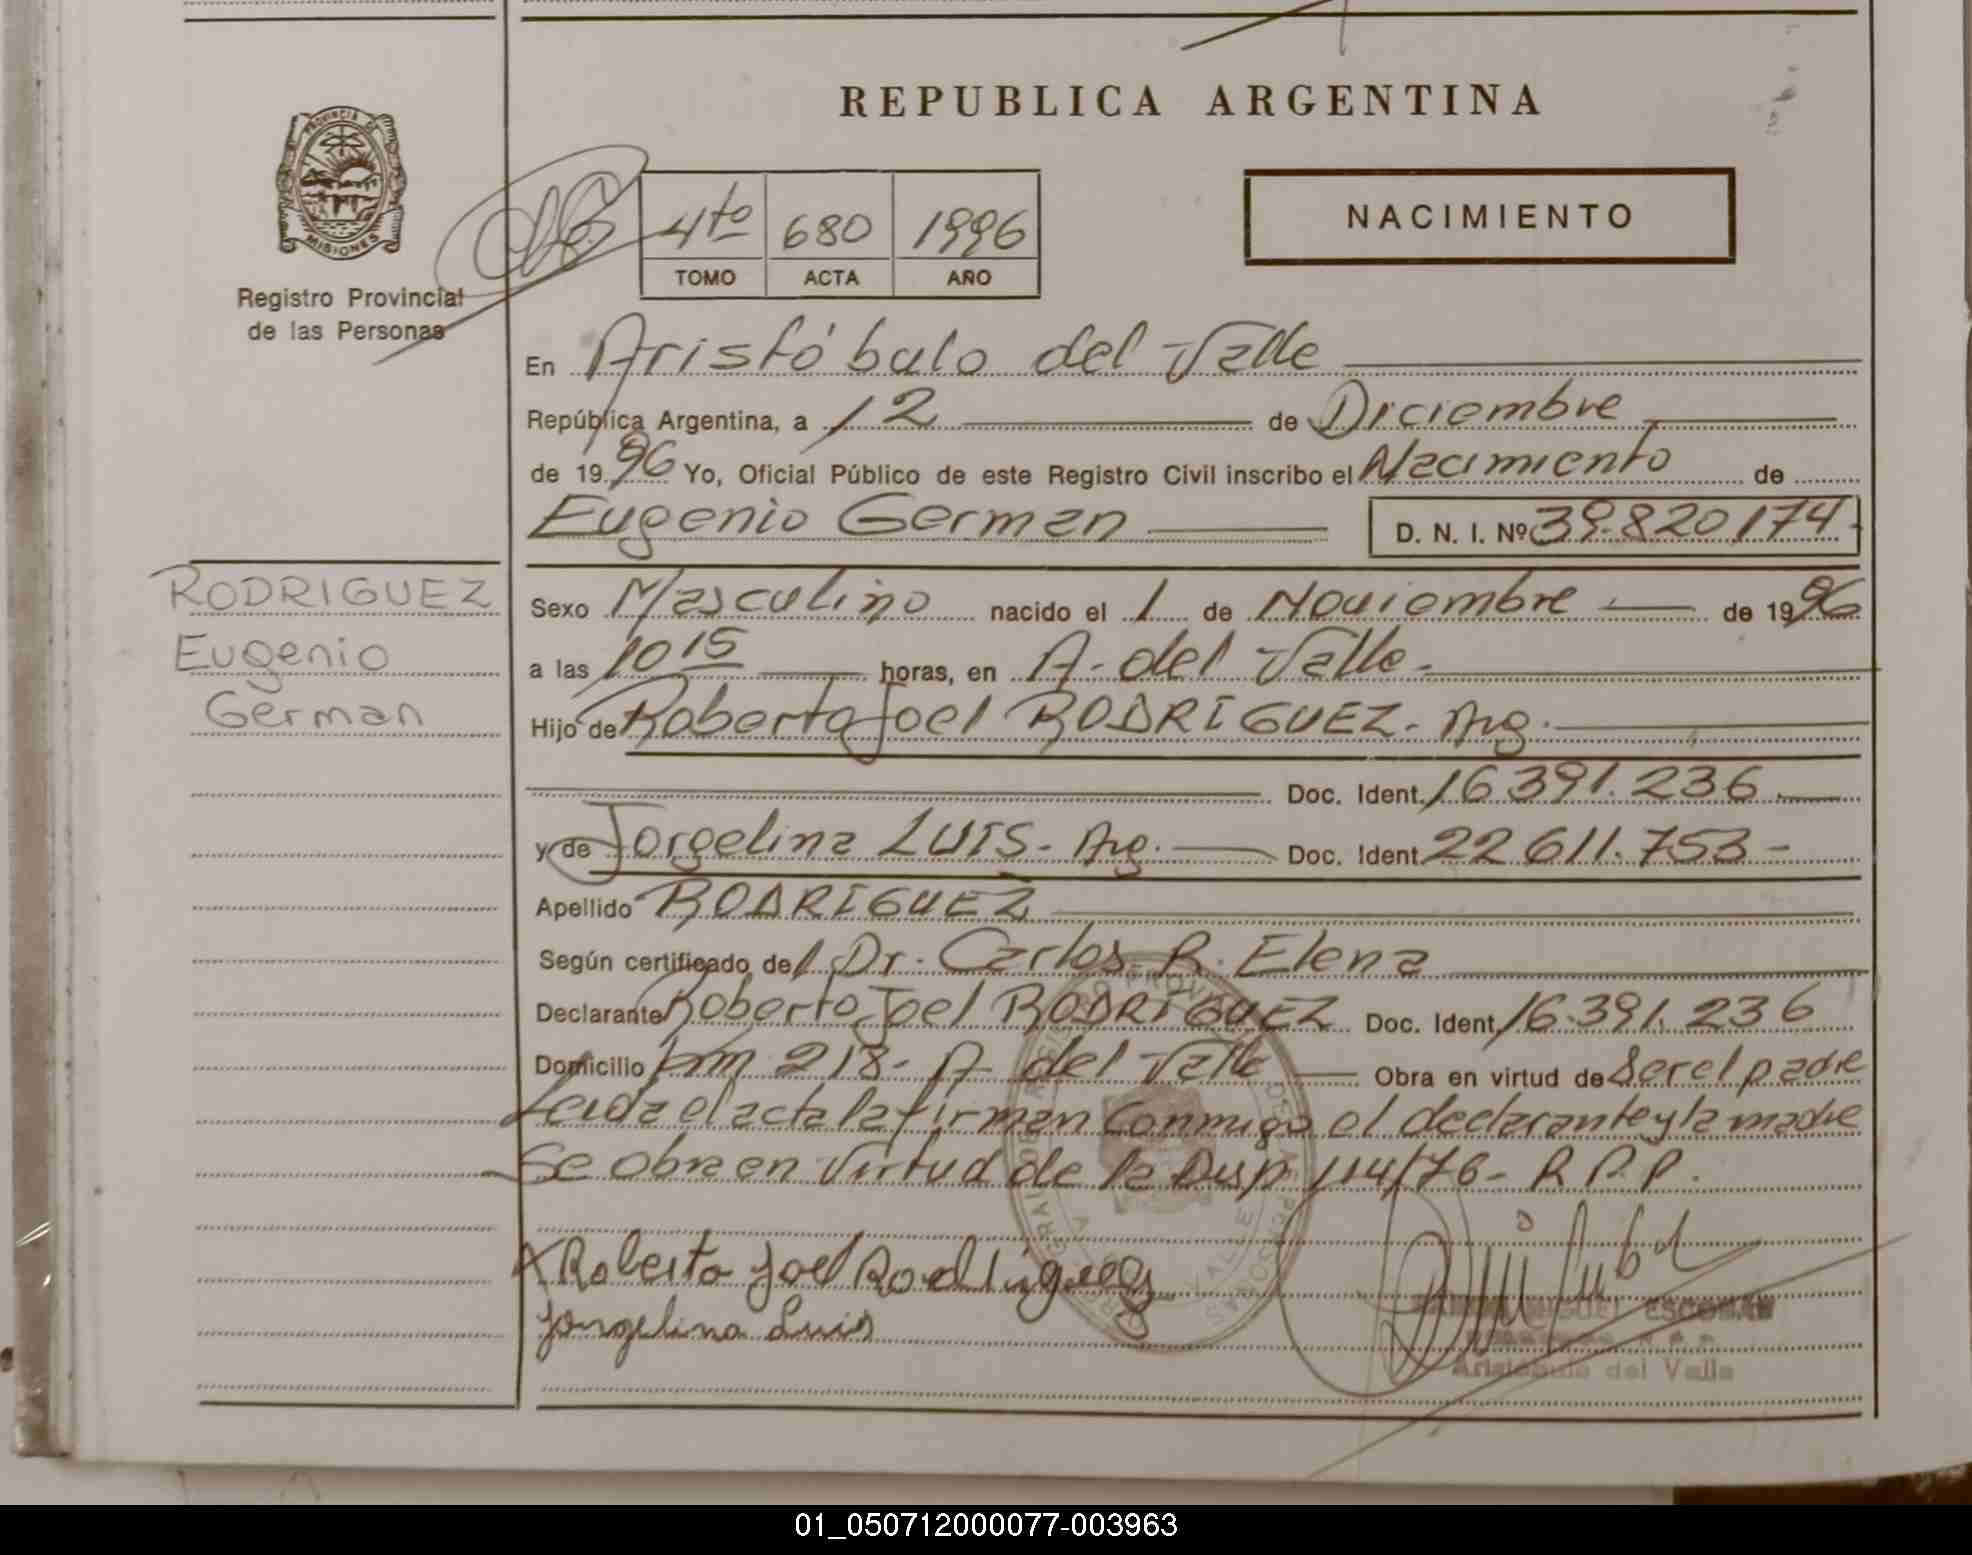 REPUBLICA ARGENTINA
PROVINCIA DE
MISIONES
Registro Provincial
de las Personas
4to 680 1996
TOMO ACTA AÑO
NACIMIENTO
En Aristóbulo del Valle
República Argentina, a 12 de Diciembre
de 1996 Yo, Oficial Público de este Registro Civil inscribo el Nacimiento de
Eugenio German D. N. I. Nº 39.820174
RODRIGUEZ
Eugenio
German
Sexo Masculino nacido el 1 de Noviembre de 1996
a las 10 15 horas, en A. del Valle.
Hijo de Roberto Joel RODRIGUEZ. Arg.
Doc. Ident. 16391.236
y de Jorgelina LUIS. Arg. Doc. Ident. 22611.753
Apellido RODRIGUEZ
Según certificado del Dr. Carlos R. Elena
Declarante Roberto Joel RODRIGUEZ Doc. Ident. 16.391.236
Domicilio km 218- A del Valle Obra en virtud de Ser el padre
Leida el acta la firman conmigo el declarante y la madre
Se obra en virtud de la Disp 114/76- R.P.P.
X Roberto Joel Rodríguez
Jorgelina Luis
MIGUEL ESCOBAR
Aristóbulo del Valle
01_050712000077-003963